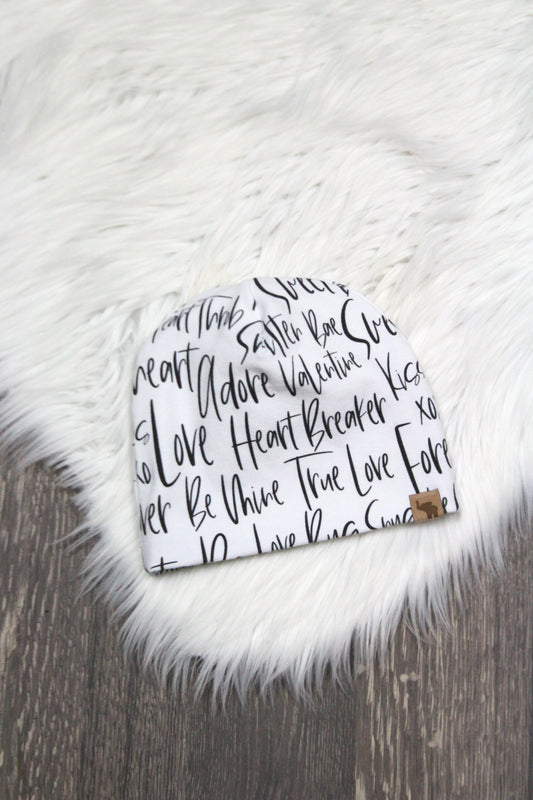 Heart Throb Sweet
Smitten Bae Swee
heart Adore Valentine Kiss
Love HeartBreaker xo
ver Be Mine True Love Fore
Love Bug Snug